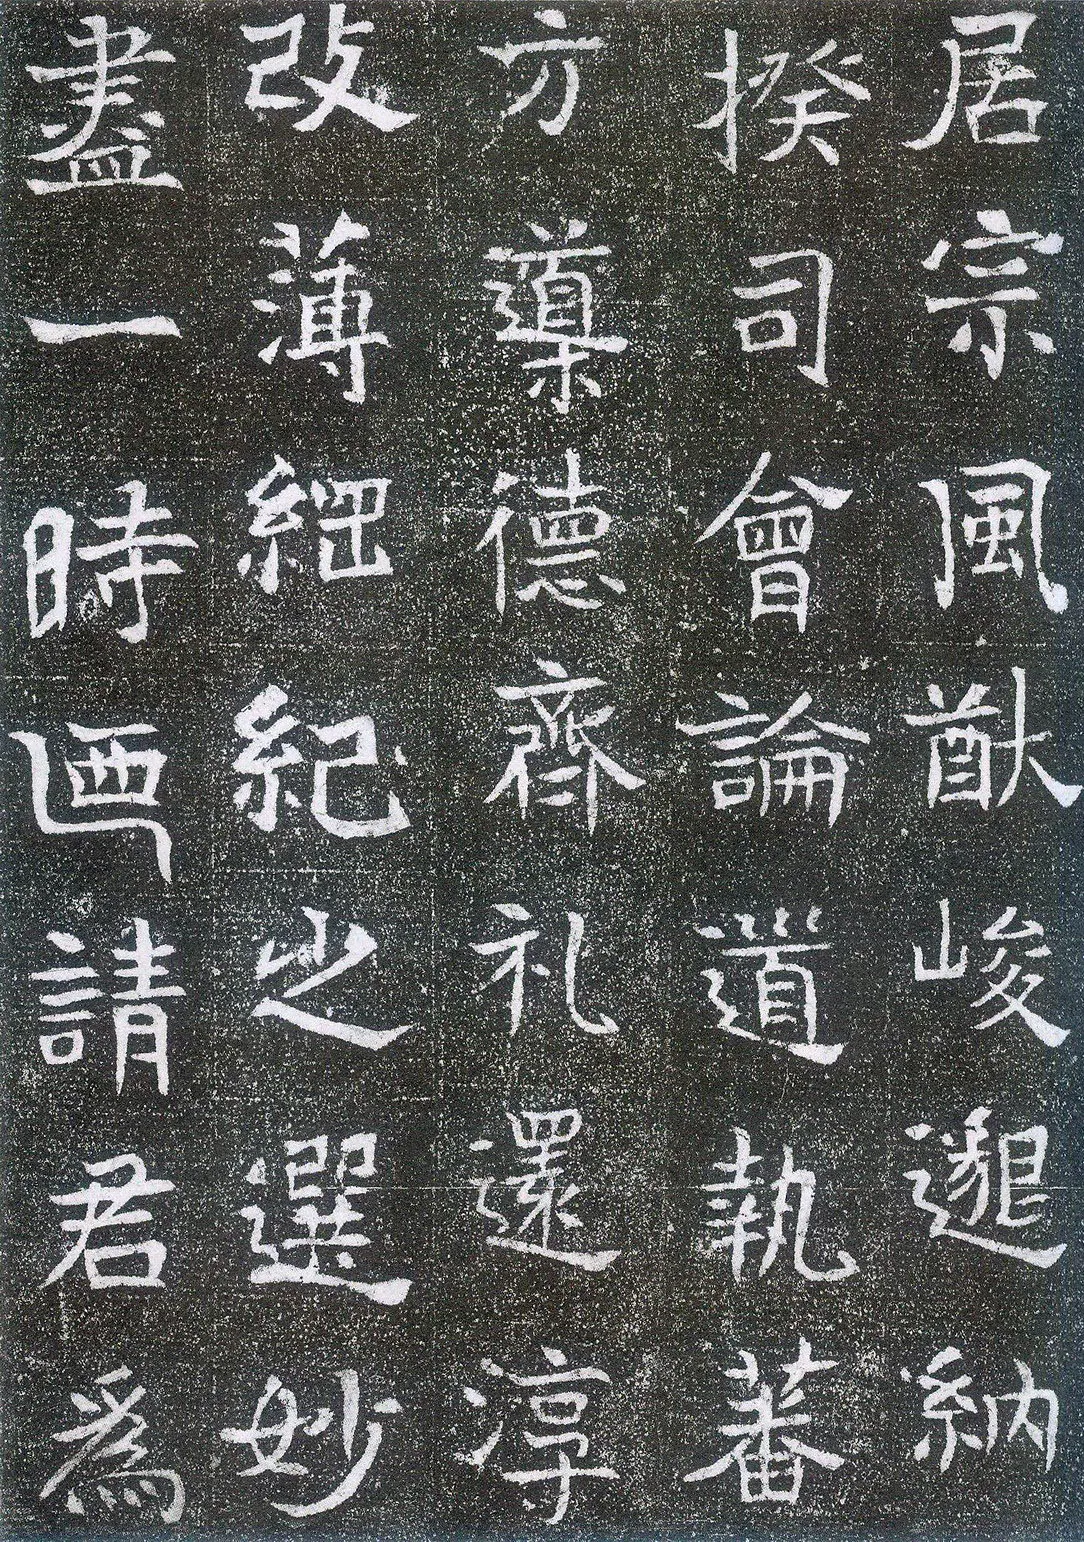 居宗風猷峻邈納
揆司會論道執蕃
方導德齊礼還淳
改薄經紀之選妙
盡一時迺請君為